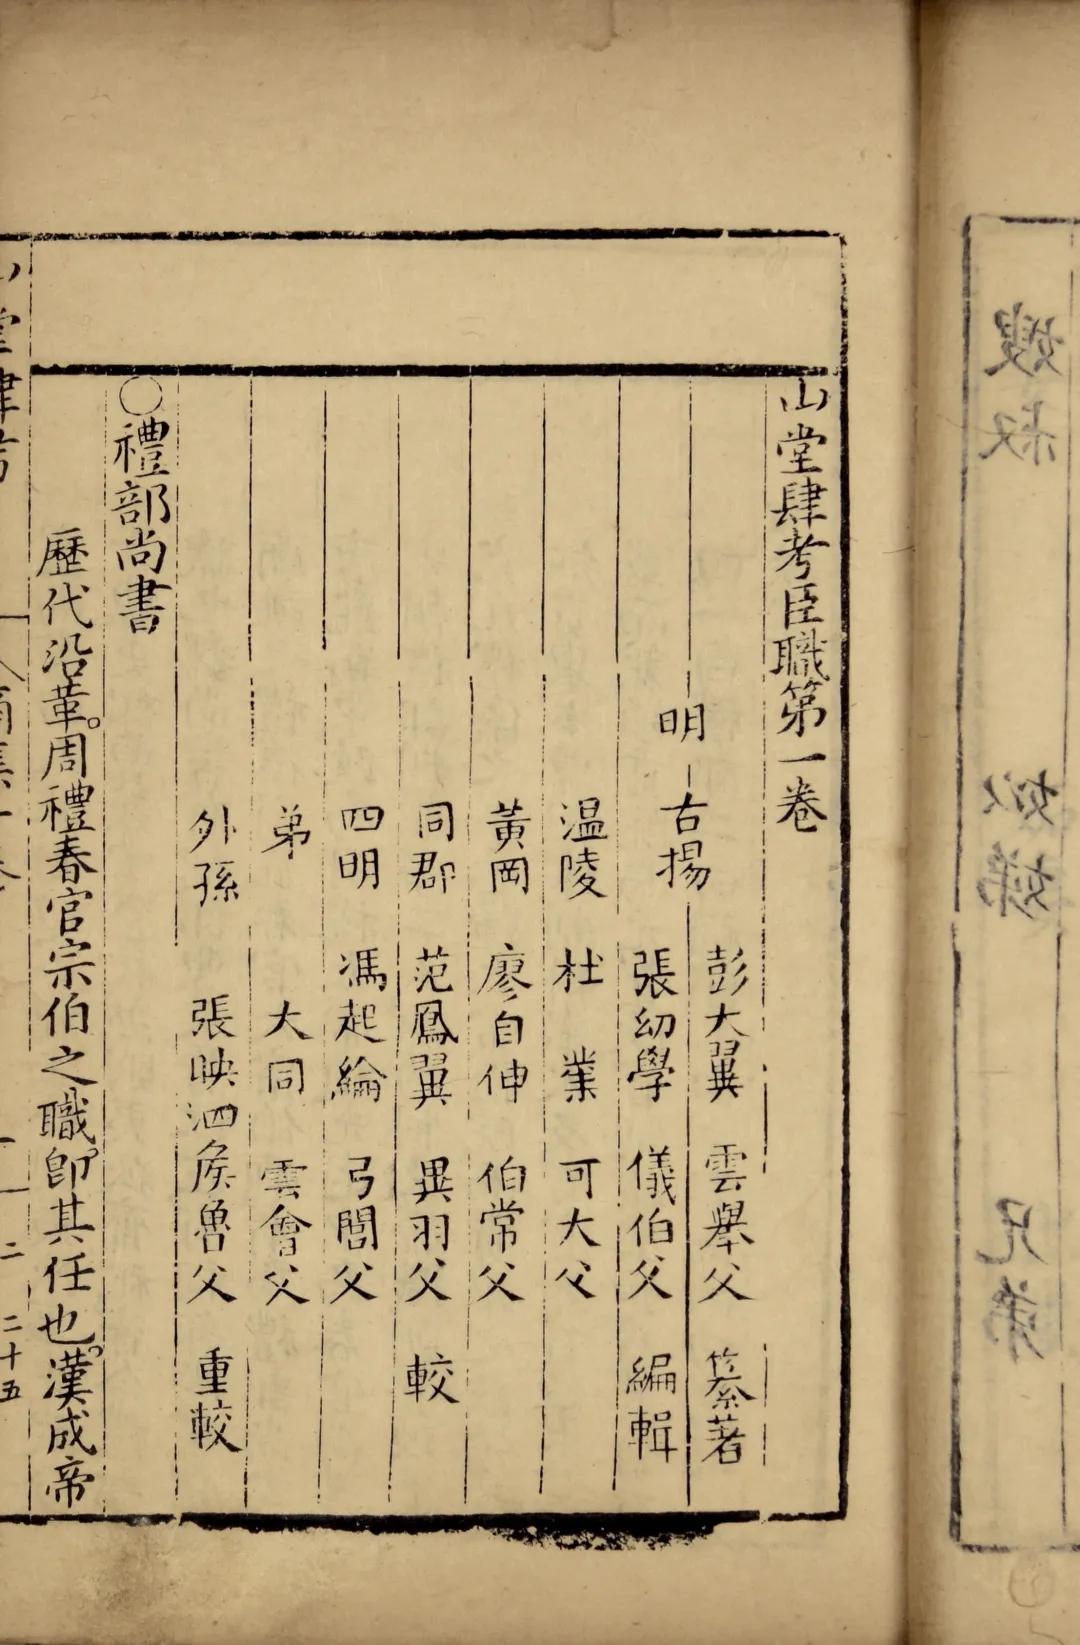 山堂肆考臣職第一卷
明 古揚 彭大翼 雲舉父 纂著
張幼學 儀伯父 編輯
温陵 杜業 可大父
黃岡 廖自伸 伯常父
同郡 范鳳翼 異羽父 較
四明 馮起綸 弓閭父
弟 大同 雲會父
外孫 張映泗矦魯父 重較
○禮部尚書
歷代沿革。周禮春官宗伯之職。卽其任也。漢成帝
二 二十五
嫂叔 姒娣 兄弟